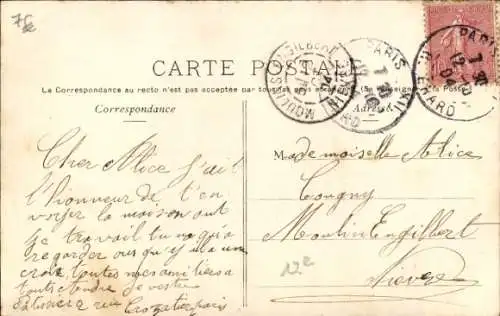 75c
CARTE POSTALE
La Correspondance au recto n'est pas acceptée par tous les pays étrangers (Se renseigner à la Poste)
Correspondance
Adresse
MOULINS-ENGILBERT
NIEVRE
PARIS
PARIS
7
12
04
Cher Alice j'ait
l'honneur de t'en
voyer la maison out
je travail tu na qua
regarder ous qu'y a une
croix toutes mes amitiers a
touts
Crozatier paris
Mademoiselle Alice
Cougny
Moulin Engilbert
Nievre
12e